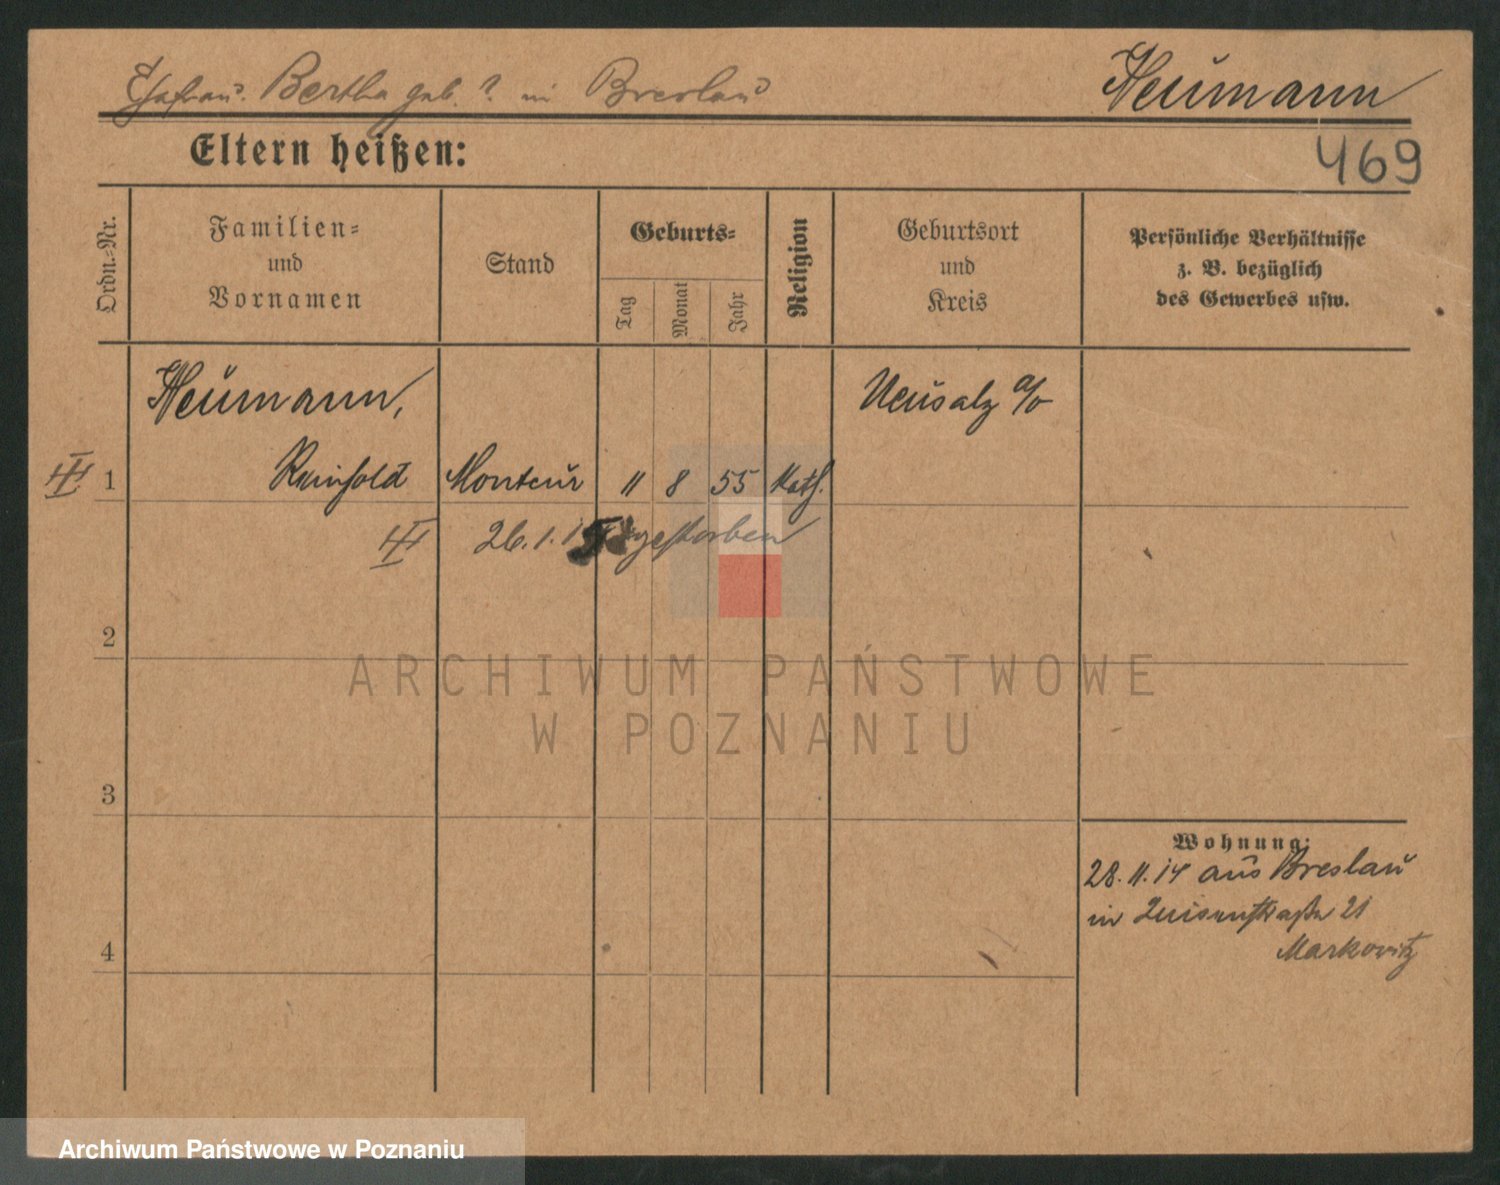 Ehefrau. Bertha geb. ? in Breslau
Neumann
Eltern heißen:
469
Ordn.-Nr.
Familien-
und
Vornamen
Stand
Geburts-
Tag
Monat
Jahr
Religion
Geburtsort
und
Kreis
Persönliche Verhältnisse
z. B. bezüglich
des Gewerbes usw.
Neumann,
Neusalz a/o
1 Reinhold Monteur 11 8 55 Kath.
26.1.15 gestorben
2
ARCHIWUM PAŃSTWOWE
W POZNANIU
3
Wohnung:
28.11.14 aus Breslau
in Luisenstraße 21
Markovitz
4
Archiwum Państwowe w Poznaniu